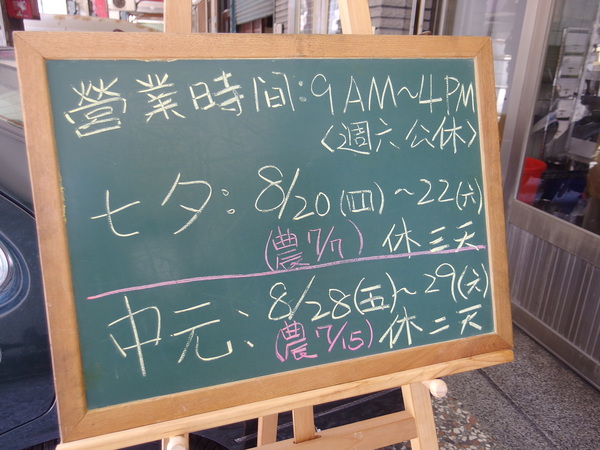 營業時間:9AM~4PM
〈週六公休〉
七夕:8/20(四)~22(六)
(農7/7)休三天
中元、8/28(五)~29(六)
(農7/15)休二天